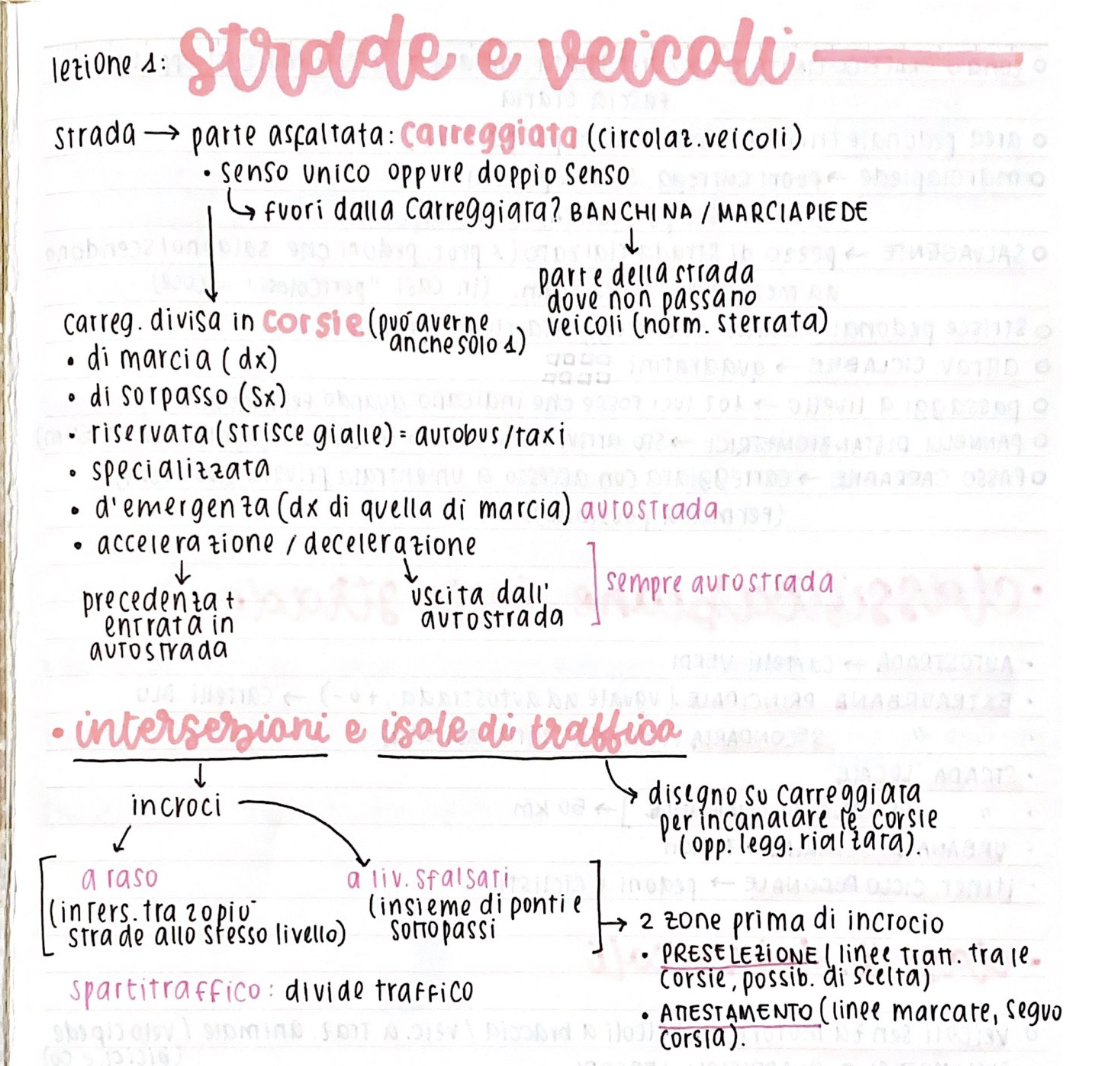 lezione 1: strade e veicoli
strada → parte asfaltata: carreggiata (circolaz. veicoli)
• senso unico oppure doppio senso
↳ fuori dalla carreggiata? BANCHINA / MARCIAPIEDE
↓
parte della strada
dove non passano
veicoli (norm. sterrata)
carreg. divisa in corsie (può averne
anche solo 1)
• di marcia (dx)
• di sorpasso (sx)
• riservata (strisce gialle) = autobus/taxi
• specializzata
• d'emergenza (dx di quella di marcia) autostrada
• accelerazione / decelerazione
precedenza +
entrata in
autostrada
uscita dall'
autostrada
sempre autostrada
• intersezioni e isole di traffico
incroci
disegno su carreggiata
per incanalare le corsie
(opp. legg. rialzata).
a raso
(inters. tra 2 o più
strade allo stesso livello)
a liv. sfalsati
(insieme di ponti e
sottopassi
→ 2 zone prima di incrocio
• PRESELEZIONE (linee tratt. tra le
corsie, possib. di scelta)
• ATTESTAMENTO (linee marcate, seguo
corsia).
spartitraffico: divide traffico